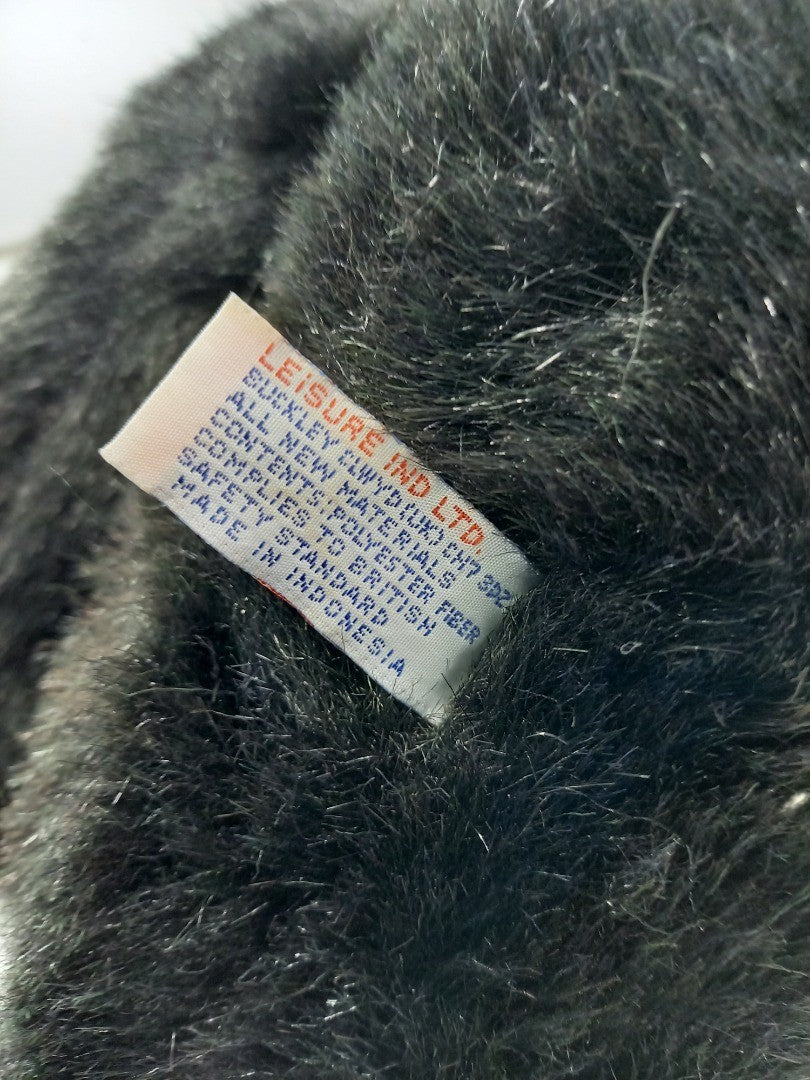 LEISURE IND LTD.
BUCKLEY CLWYD (UK) CH7 3DZ
ALL NEW MATERIALS
CONTENTS: POLYESTER FIBER
COMPLIES TO BRITISH
SAFETY STANDARD
MADE IN INDONESIA